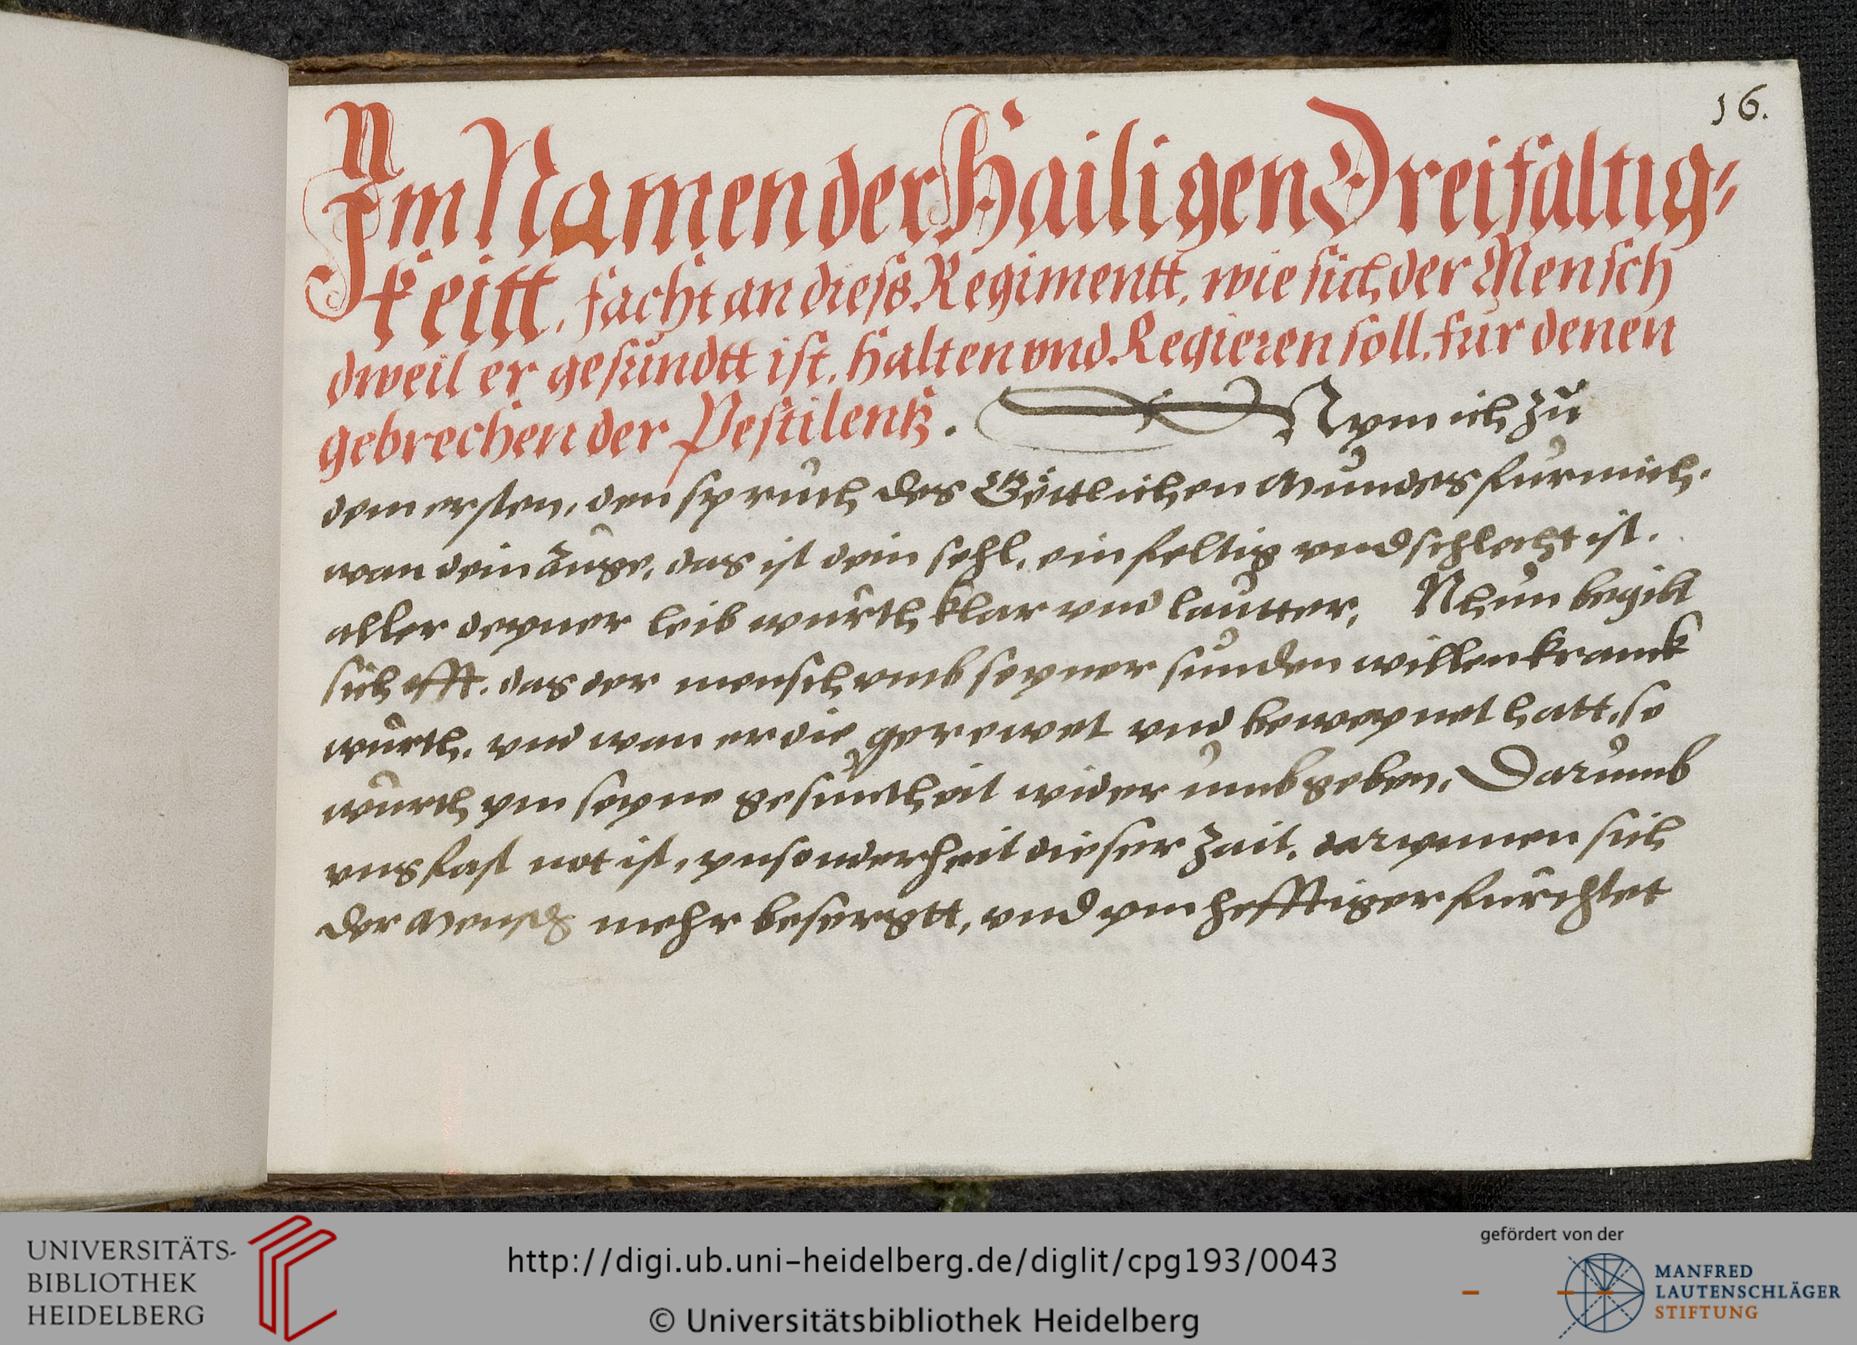 16.
Im Namen der Hailigen Dreifaltig-
keitt. facht an diess Regimentt, wie sich der Mensch
dweil er gesundtt ist, halten vnd Regieren soll, fur denen
gebrechen der Pestilentz. Nym ich zu
dem ersten, den spruch des Göttlichen Mundes fur mich.
wan dein auge, das ist dein sehl, ein feltig vnd schlecht ist.
aller deyner leib wurth klar vnd lautter. Nhun begibt
sich offt. das der mensch vmb seyner sunden willen kranck
wurth. vnd wan er die gerewet vnd beweynet hatt, so
wurth ym seyne gesuntheit wider umbgeben. Darumb
vns fast not ist, ynsonderheit dieser Zait. darynnen sich
der Mensch mehr besorgtt, vnd ym hefftiger furchtet
UNIVERSITÄTS-
BIBLIOTHEK
HEIDELBERG
http://digi.ub.uni-heidelberg.de/diglit/cpg193/0043
© Universitätsbibliothek Heidelberg
gefördert von der
MANFRED
LAUTENSCHLÄGER
STIFTUNG